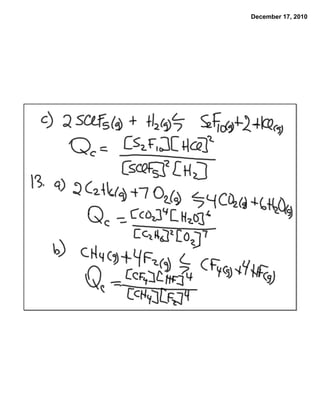 December 17, 2010
c) 2 SClF₅(g) + H₂(g) ⇆ S₂F₁₀(g) + 2HCl(g)
Qc = [S₂F₁₀][HCl]²
[SClF₅]²[H₂]
13. a) 2C₂H₆(g) + 7O₂(g) ⇆ 4CO₂(g) + 6H₂O(g)
Qc = [CO₂]⁴[H₂O]⁶
[C₂H₆]²[O₂]⁷
b) CH₄(g) + 4F₂(g) ⇆ CF₄(g) + 4HF(g)
Qc = [CF₄][HF]⁴
[CH₄][F₂]⁴